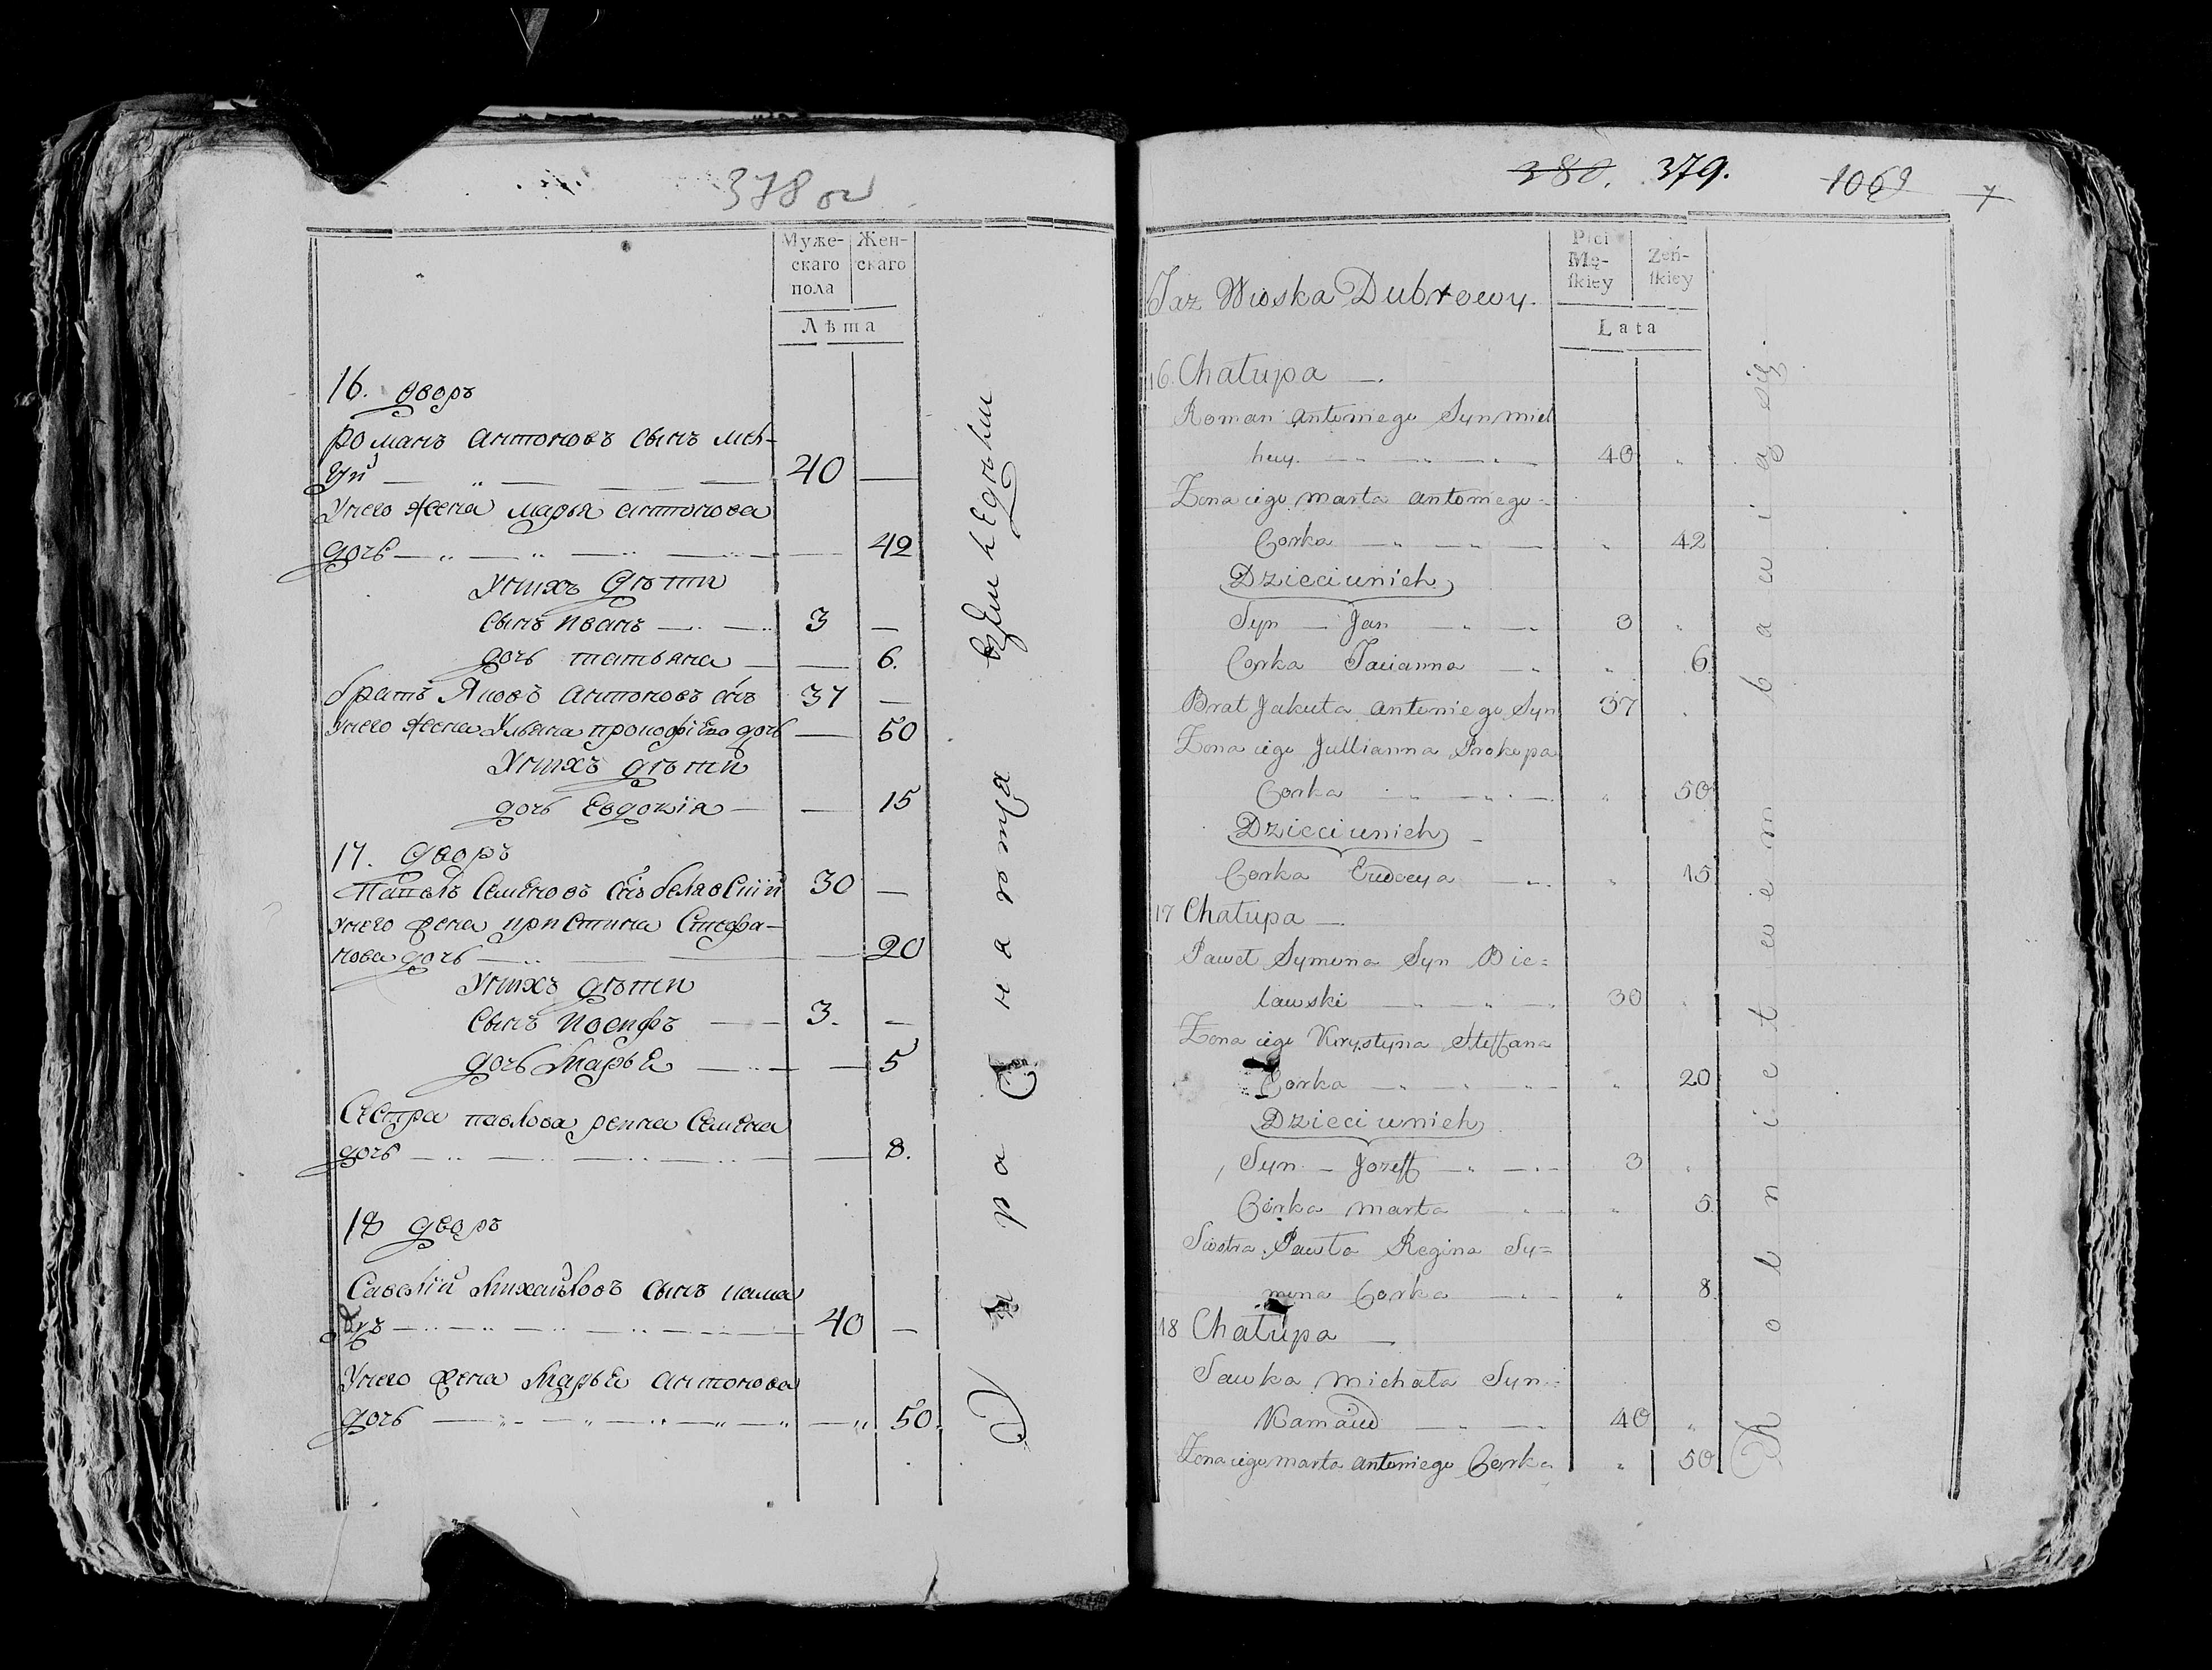 378 об
Муже-
скаго
пола
Жен-
скаго
Лѣта
16. дворъ
Романъ антоновъ сынъ мел-
40 —
Унего жена марья антонова
дочь — 42
Унихъ дѣти
сынъ иванъ — 3 —
дочь татьяна — 6.
братъ Яковъ антоновъ снъ 37 —
Унего жена Ульяна прокофiева дочь — 50
Унихъ дѣти
дочь Евдокiя — 15
17. дворъ
Павелъ Семеновъ снъ белявскiй 30 —
Унего жена кристина Стефа-
нова дочь — 20
Унихъ дѣти
сынъ иосифъ — 3. —
дочь Марье — 5
Сестра павлова регина Семена
дочь — 8.
18 дворъ
Савелiй Михайловъ сынъ кама
40 —
Унего жена Марье антонова
дочь — 50.
380. 379.
1069
Płci
Mę-
skiey
Żeń-
skiey
Lata
Taz Wioska Dubrowy.
16. Chałupa —.
Roman Antoniego Syn miel
huy. — 40 „
Zona iego marta antoniego
Corka — „ 42
Dzieci unich
Syn — Jan — 3 „
Corka Tacianna — „ 6
Brat Jakuta antoniego Syn 37 „
Zona iego Jullianna Prokopa
Corka — „ 50
Dzieci unich
Corka Eudocya — „ 15
17 Chałupa —
Paweł Symona Syn Bie=
lawski — 30 „
Zona iego Krystyna Steffana
Corka — „ 20
Dzieci unich
Syn — Jozeff — 3 „
Córka marta — „ 5
Siostra Pawła Regina Sy=
mona Corka — „ 8
18 Chałupa —
Sawka Michała Syn
Kamaud — 40 „
Zona iego marta antoniego Corka „ 50
Rolnictwem bawią się.